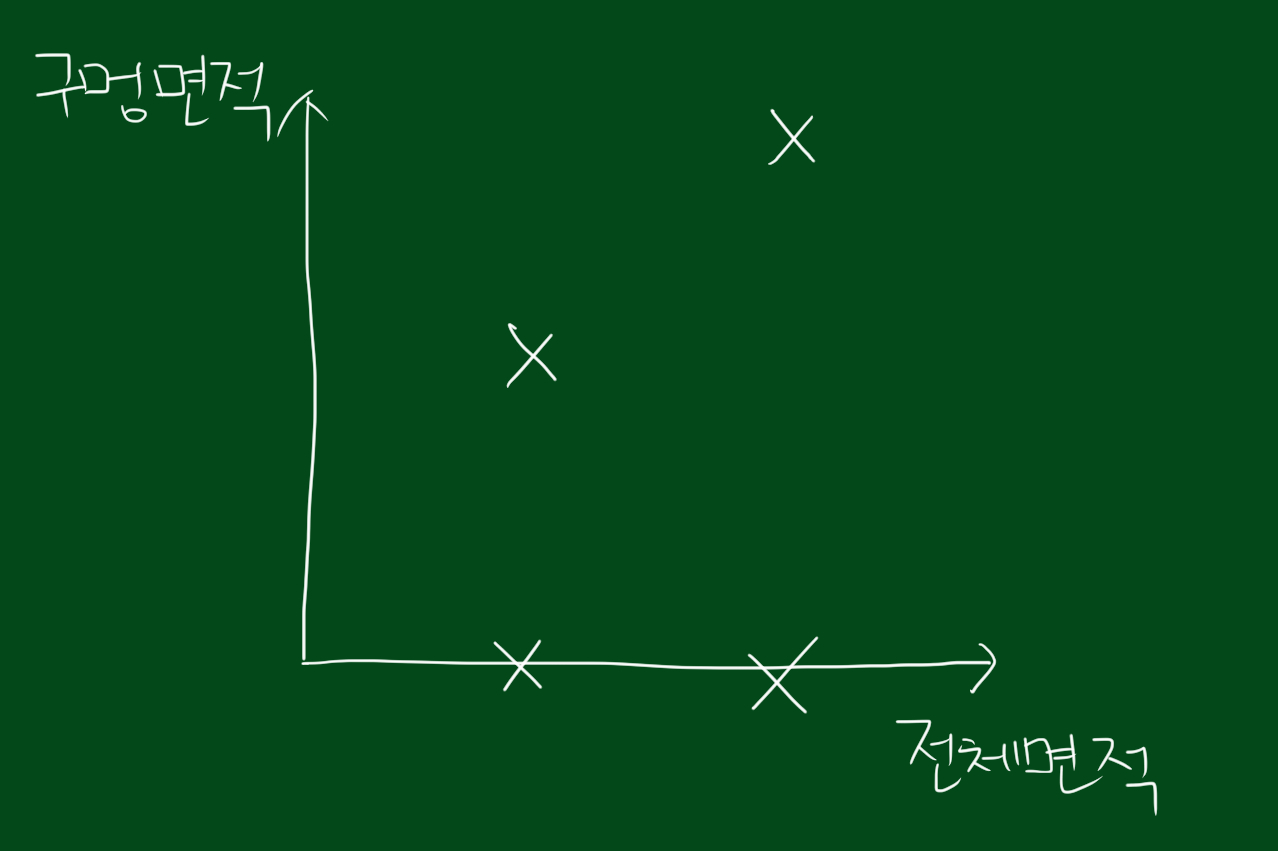 구멍면적
전체면적